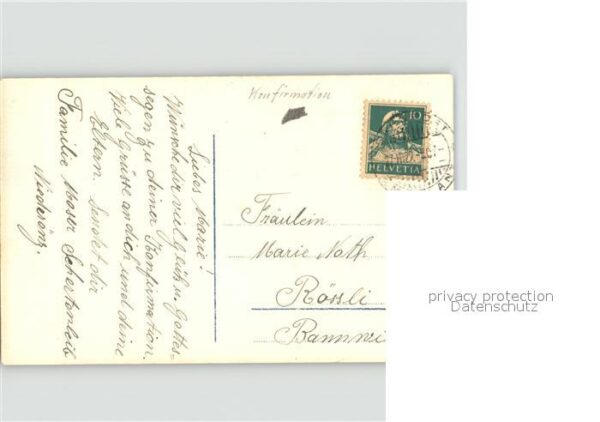 Konfirmation
Liebes Marie!
Wünsche dir viel glük u. Gottes-
segen zu deiner Konfirmation.
Viele Grüsse an dich und deine
Eltern. Sendet dir
Familie Moser Scheitenleib
Niederönz.
10
HELVETIA
Fräulein
Marie Noth
Rössli
Bannwi
privacy protection
Datenschutz